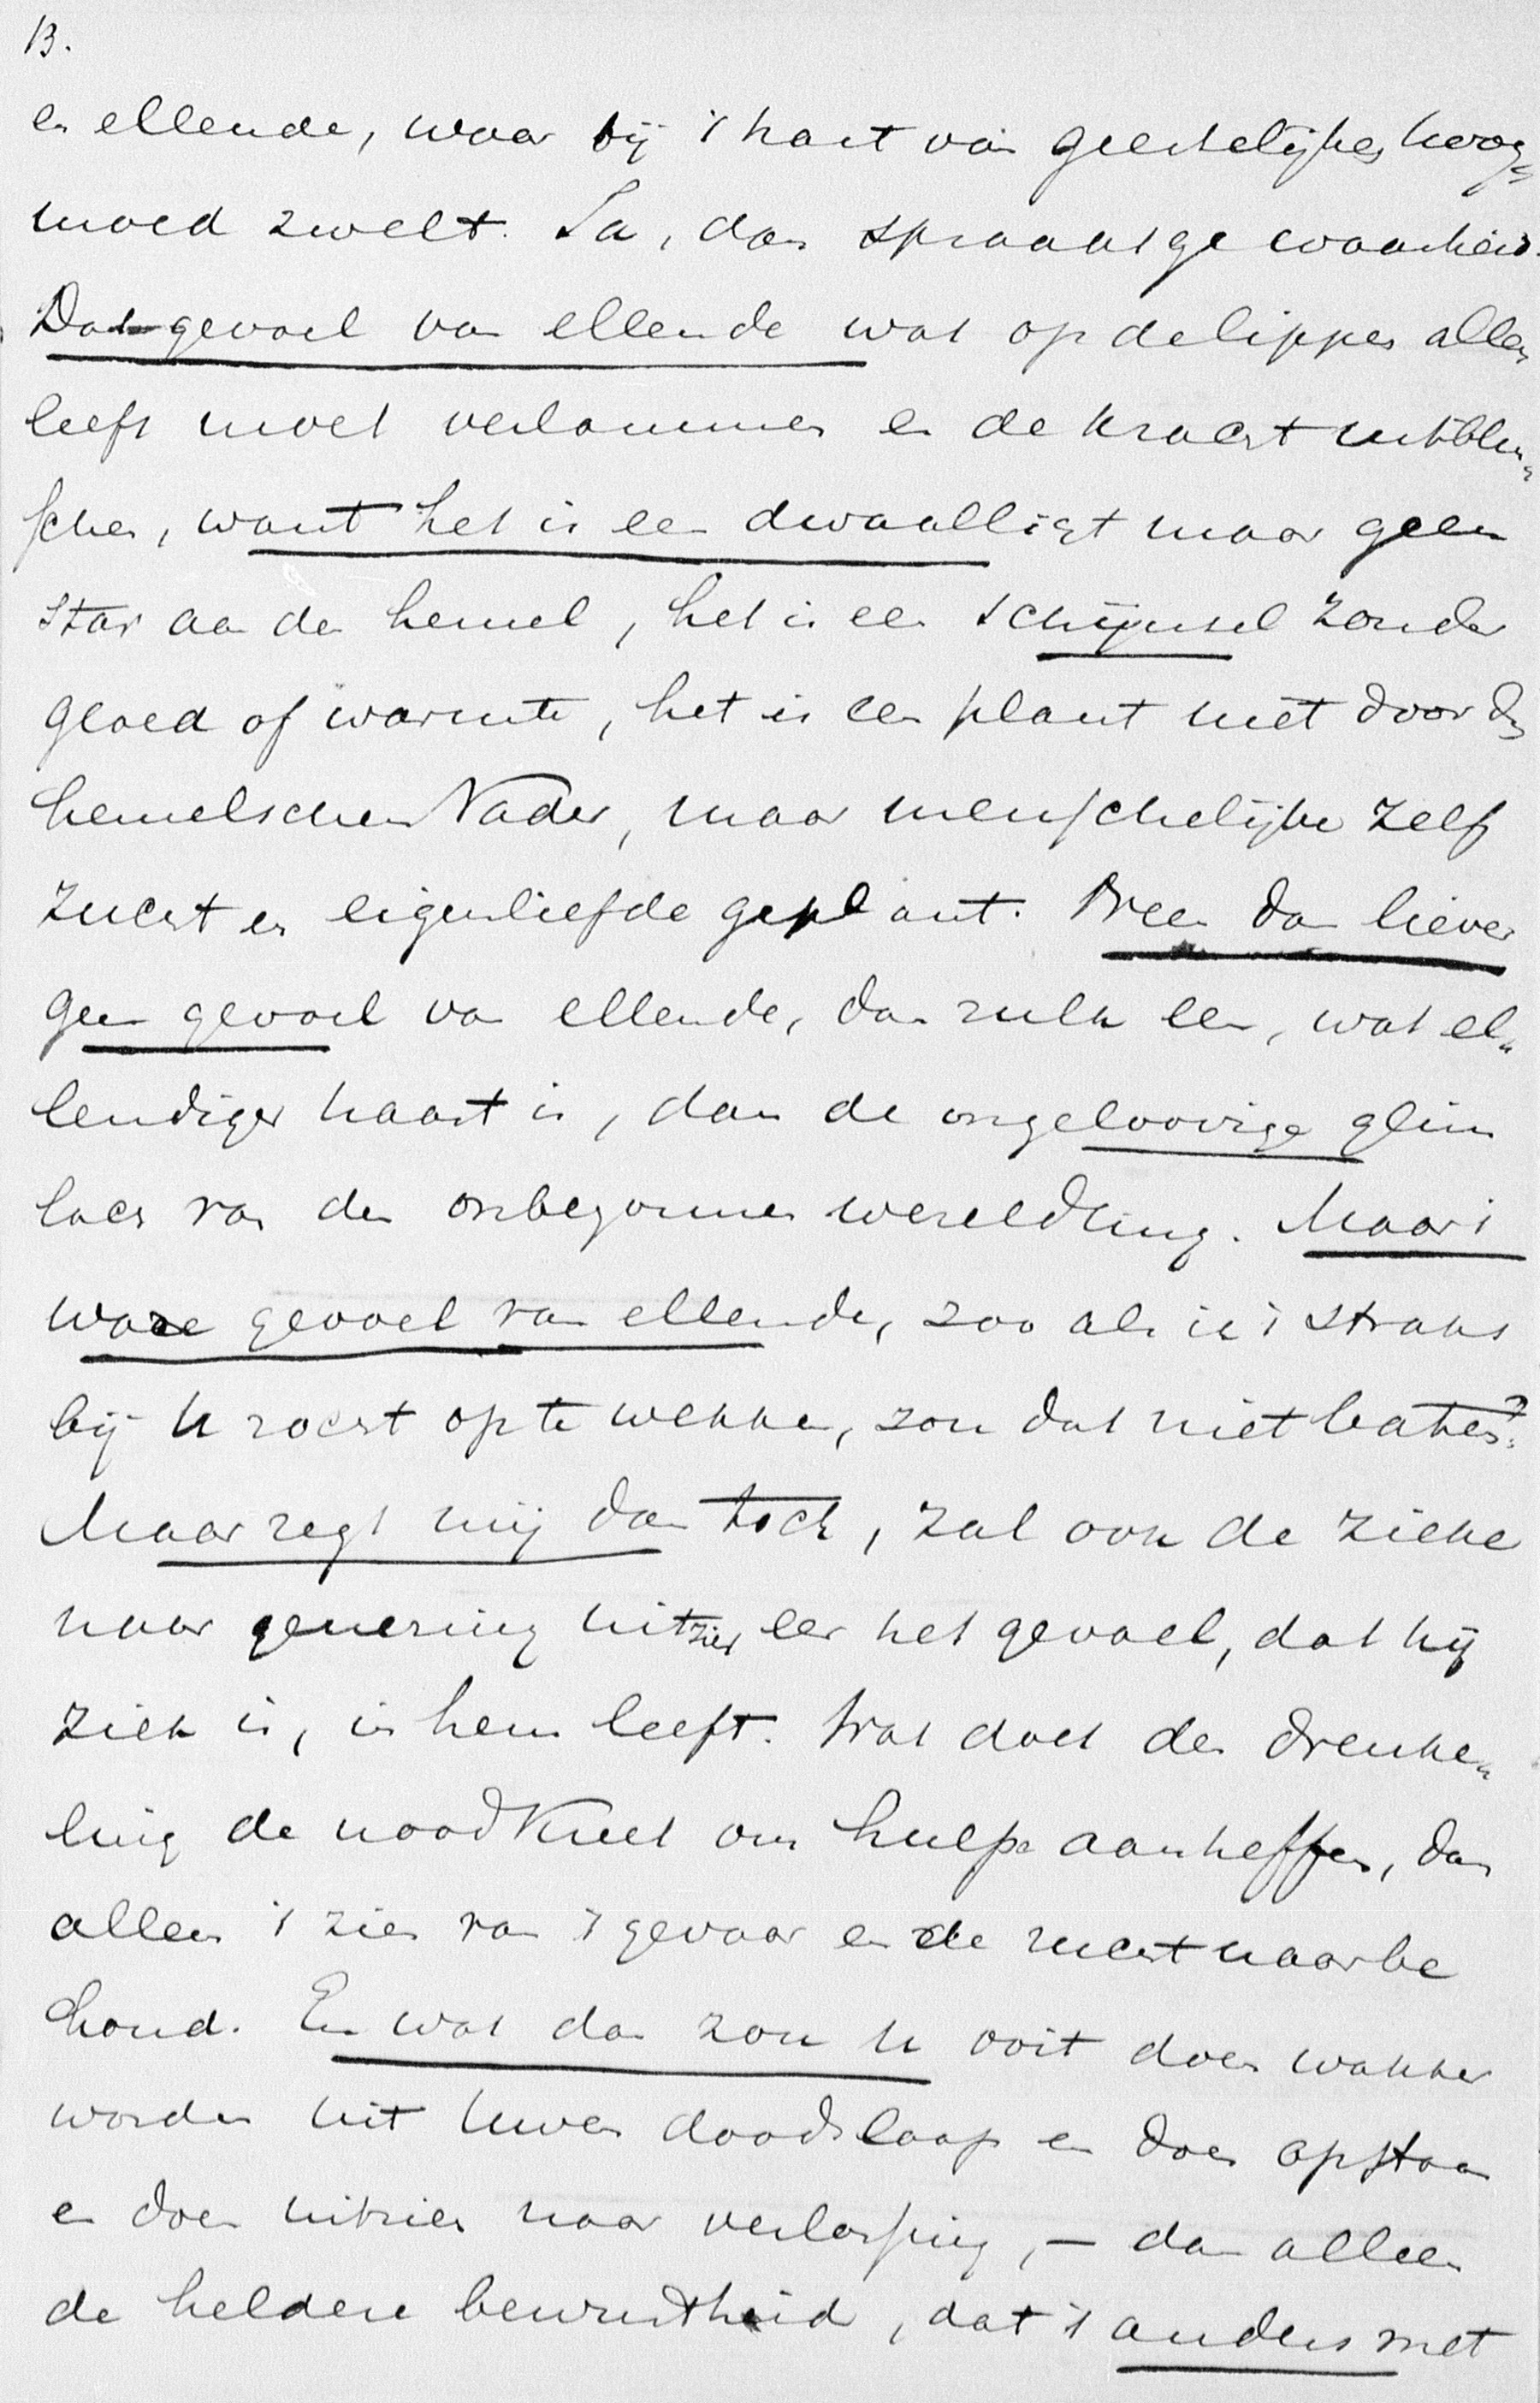 13.
en ellende, waar bij 't hart van geestelijken hoog-
moed zwelt. Ja, dan spraakt ge waarheid.
Dat gevoel van ellende wat op de lippen alleen
leeft moet verlammen en de kracht uitblus-
schen, want het is een dwaalligt maar geen
star aan den hemel, het is een schijnsel zonder
gloed of warmte, het is een plant niet door den
hemelschen Vader, maar menschelijke zelf
zucht en eigenliefde geplant. Neen dan liever
geen gevoel van ellende, dan zulk een, wat el-
lendiger haast is, dan de ongeloovige glim
lach van den onbegonnen wereldling. Maar 't
ware gevoel van ellende, zoo als ik 't straks
bij U zocht op te wekken, zou dat niet baten?
Maar zegt mij dan toch, zal ook de zieke
naar genezing uitzien eer het gevoel, dat hij
ziek is, in hem leeft. Wat doet den drenke-
ling de noodkreet om hulpe aanheffen, dan
alleen 't zien van 't gevaar en de zucht naar be
houd. En wat dan zou U ooit doen wakker
worden uit Uwen doodslaap en doen opstaan
en doen uitzien naar verlossing, – dan alleen
de heldere bewustheid, dat 't anders met